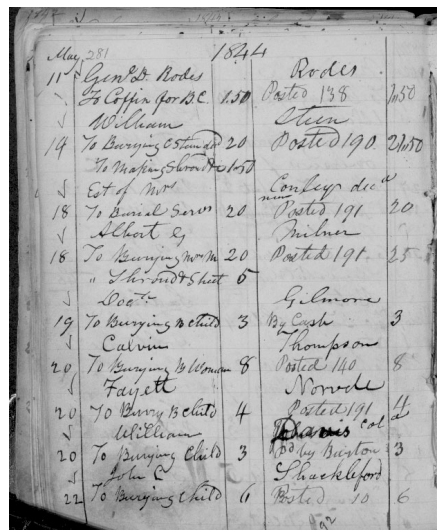 May 281 1844
11 Genl D. Rodes Rodes
To Coffin for B.C. 1.50 Posted 138 1,,50
William Steen
14 To Burying 20 Posted 190 21,,50
To Making Shroud 1.50
Est of Mrs Conley decd
18 To Burial 20 Posted 191 20
Albert Milner
18 To Burying Mrs M 20 Posted 191 25
" Shroud & Sheet 5
Doctr Gilmore
19 To Burying B Child 3 By Cash 3
Calvin Thompson
20 To Burying B Woman 8 Posted 140 8
Fayett
20 To Burry B Child 4 Posted 191 4
William Davis Cold
20 To Burying Child 3 Pd by Burton 3
John L Shackleford
22 To Burying Child 6 Posted 10 6